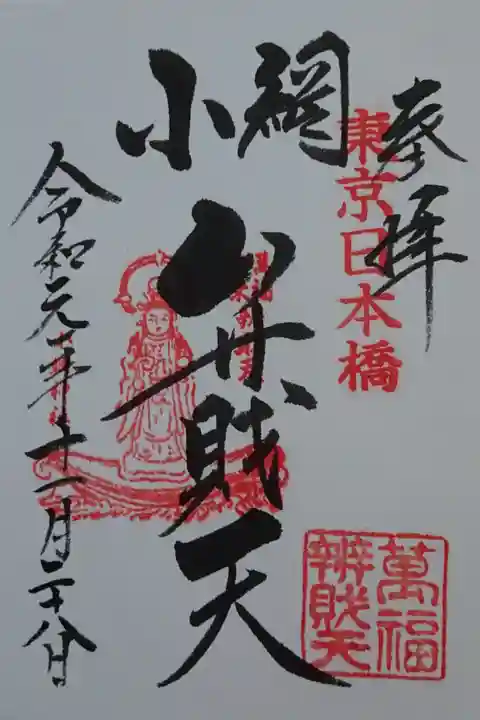 奉拝
東京日本橋
小網
弁財天
令和元年十一月二十八日
萬福
辨財天